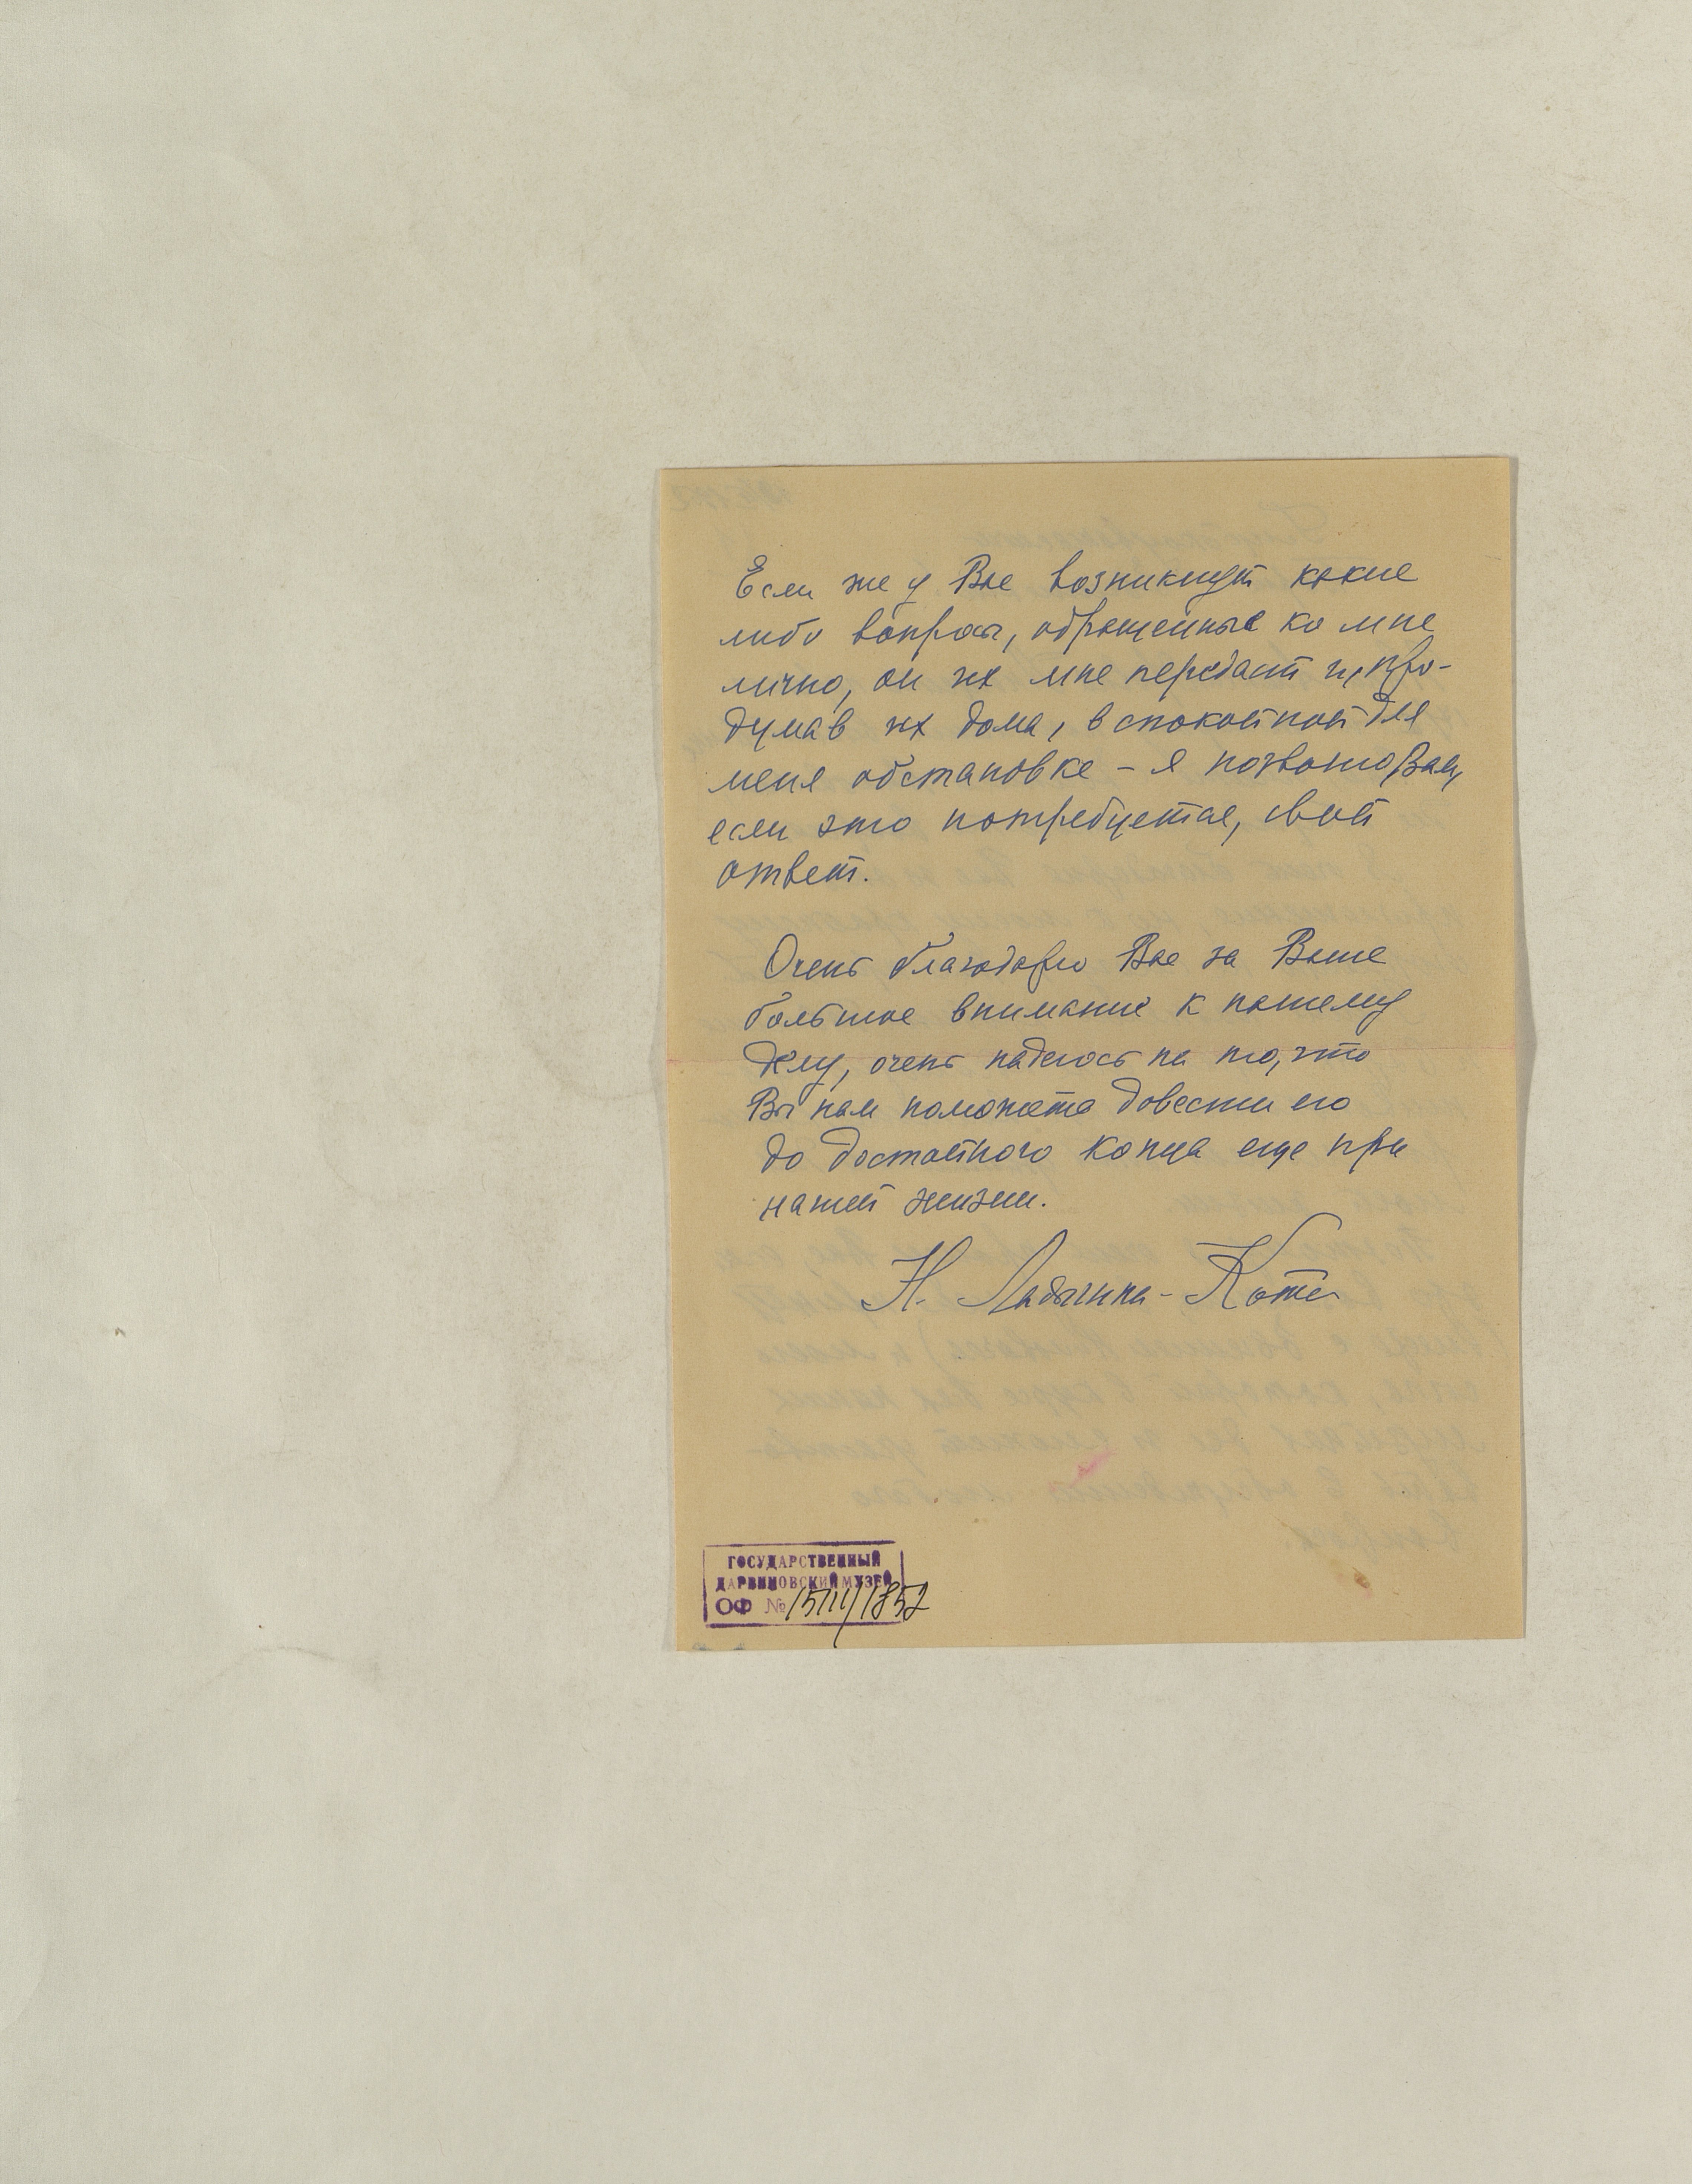 Если же у Вас возникнут какие
либо вопросы, обращенные ко мне
лично, он их мне передаст и, про-
думав их дома, в спокойной для
меня обстановке – я позвоню Вам,
если это потребуется, свой
ответ.
Очень благодарю Вас за Ваше
большое внимание к нашему
делу, очень надеюсь на то, что
Вы нам поможете довести его
до достойного конца еще при
нашей жизни.
Н. Ладыгина-Котс
ГОСУДАРСТВЕННЫЙ
ДАРВИНОВСКИЙ МУЗЕЙ
ОФ №